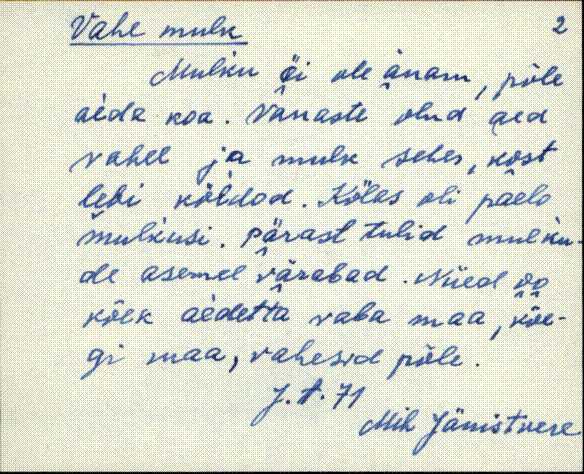 Vahe mulk 2
Mulku ei ole änam, põle
aeda koa. Vanaste olnd aed
vahel ja mulk sehes, kost
lebi kõldod. Kõlas oli paelo
mulkusi. Pärast tulid mulku-
de asemel värabad. Nüed oo
kõek aedetta vaba maa, kõe-
gi maa, vahesid põle.
J. t. 71
Mih Jänistvere